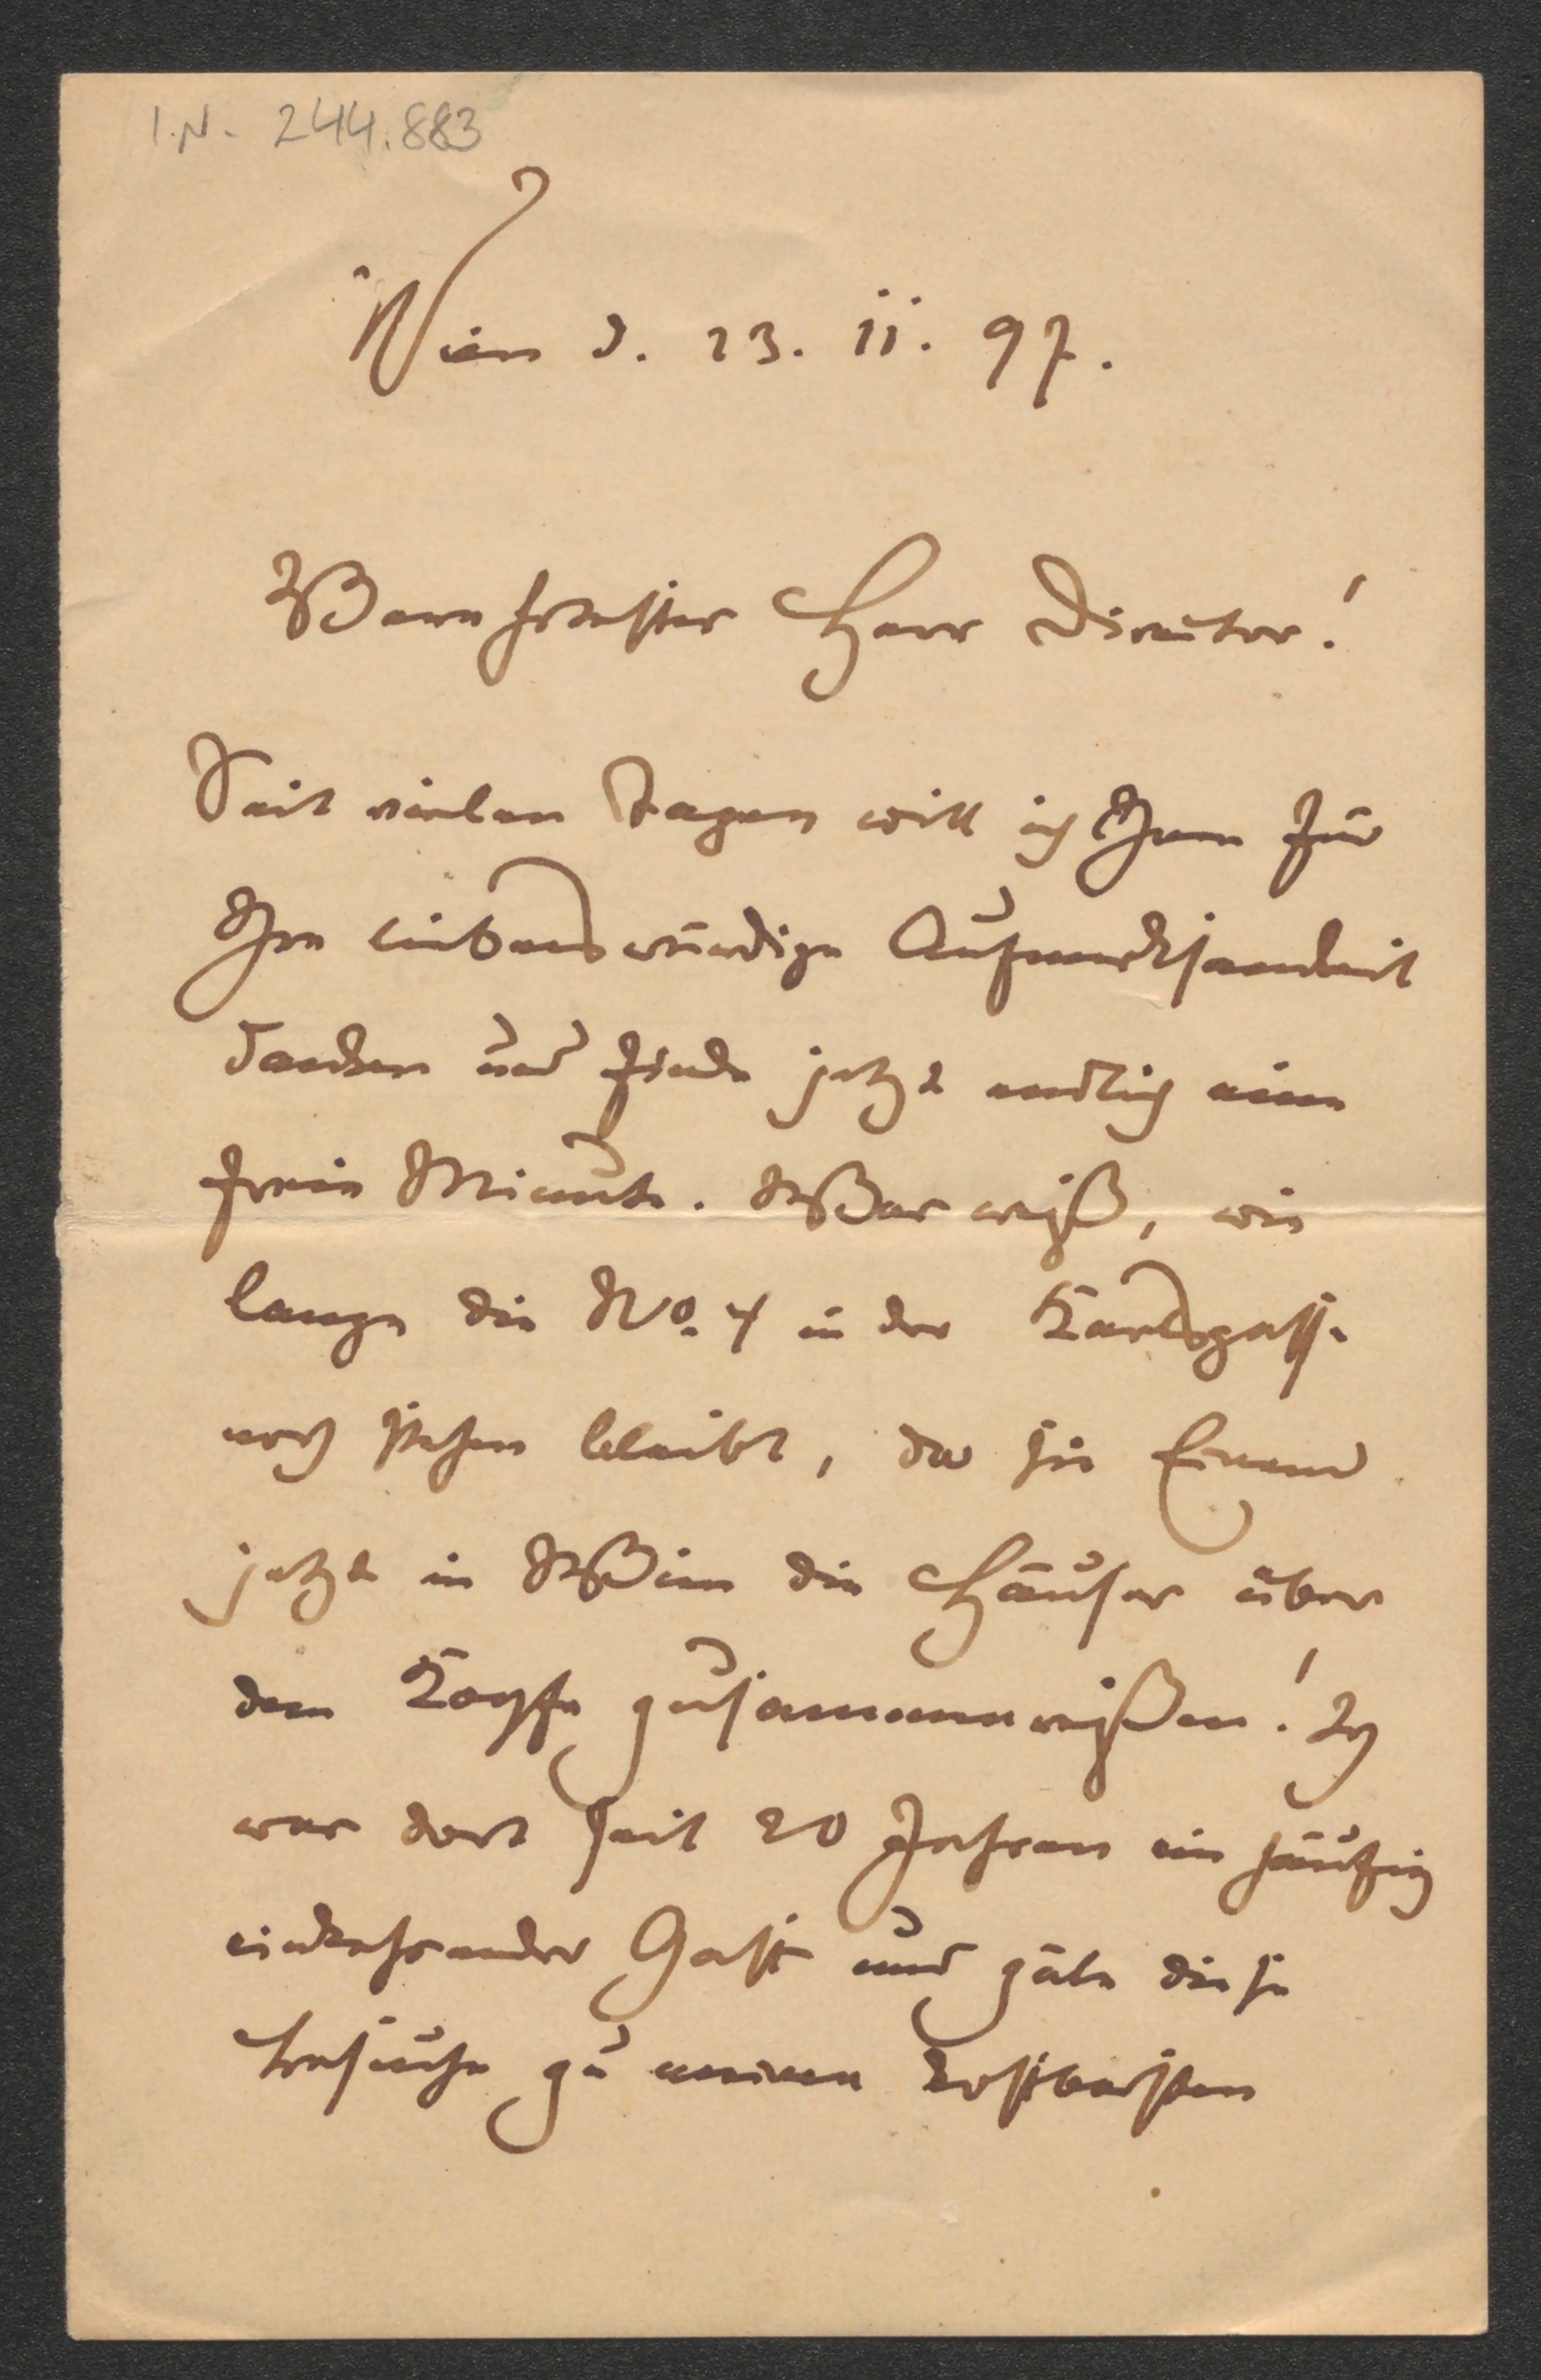 I.N. 244.883
Wien d. 23. 11. 97.
Verehrtester Herr Director!
Seit vielen Tagen will ich Ihnen für
Ihre liebenswürdige Aufmerksamkeit
danken und finde jetzt endlich eine
freie Minute. Wer weiß, wie
lange die No. 4 in der Karlsgasse
noch stehen bleibt, da sie Einem
jetzt in Wien die Häuser über
dem Kopfe zusammenreißen! Ich
war dort seit 20 Jahren ein häufig
einkehrender Gast und zäle diese
Besuche zu meinen kostbarsten